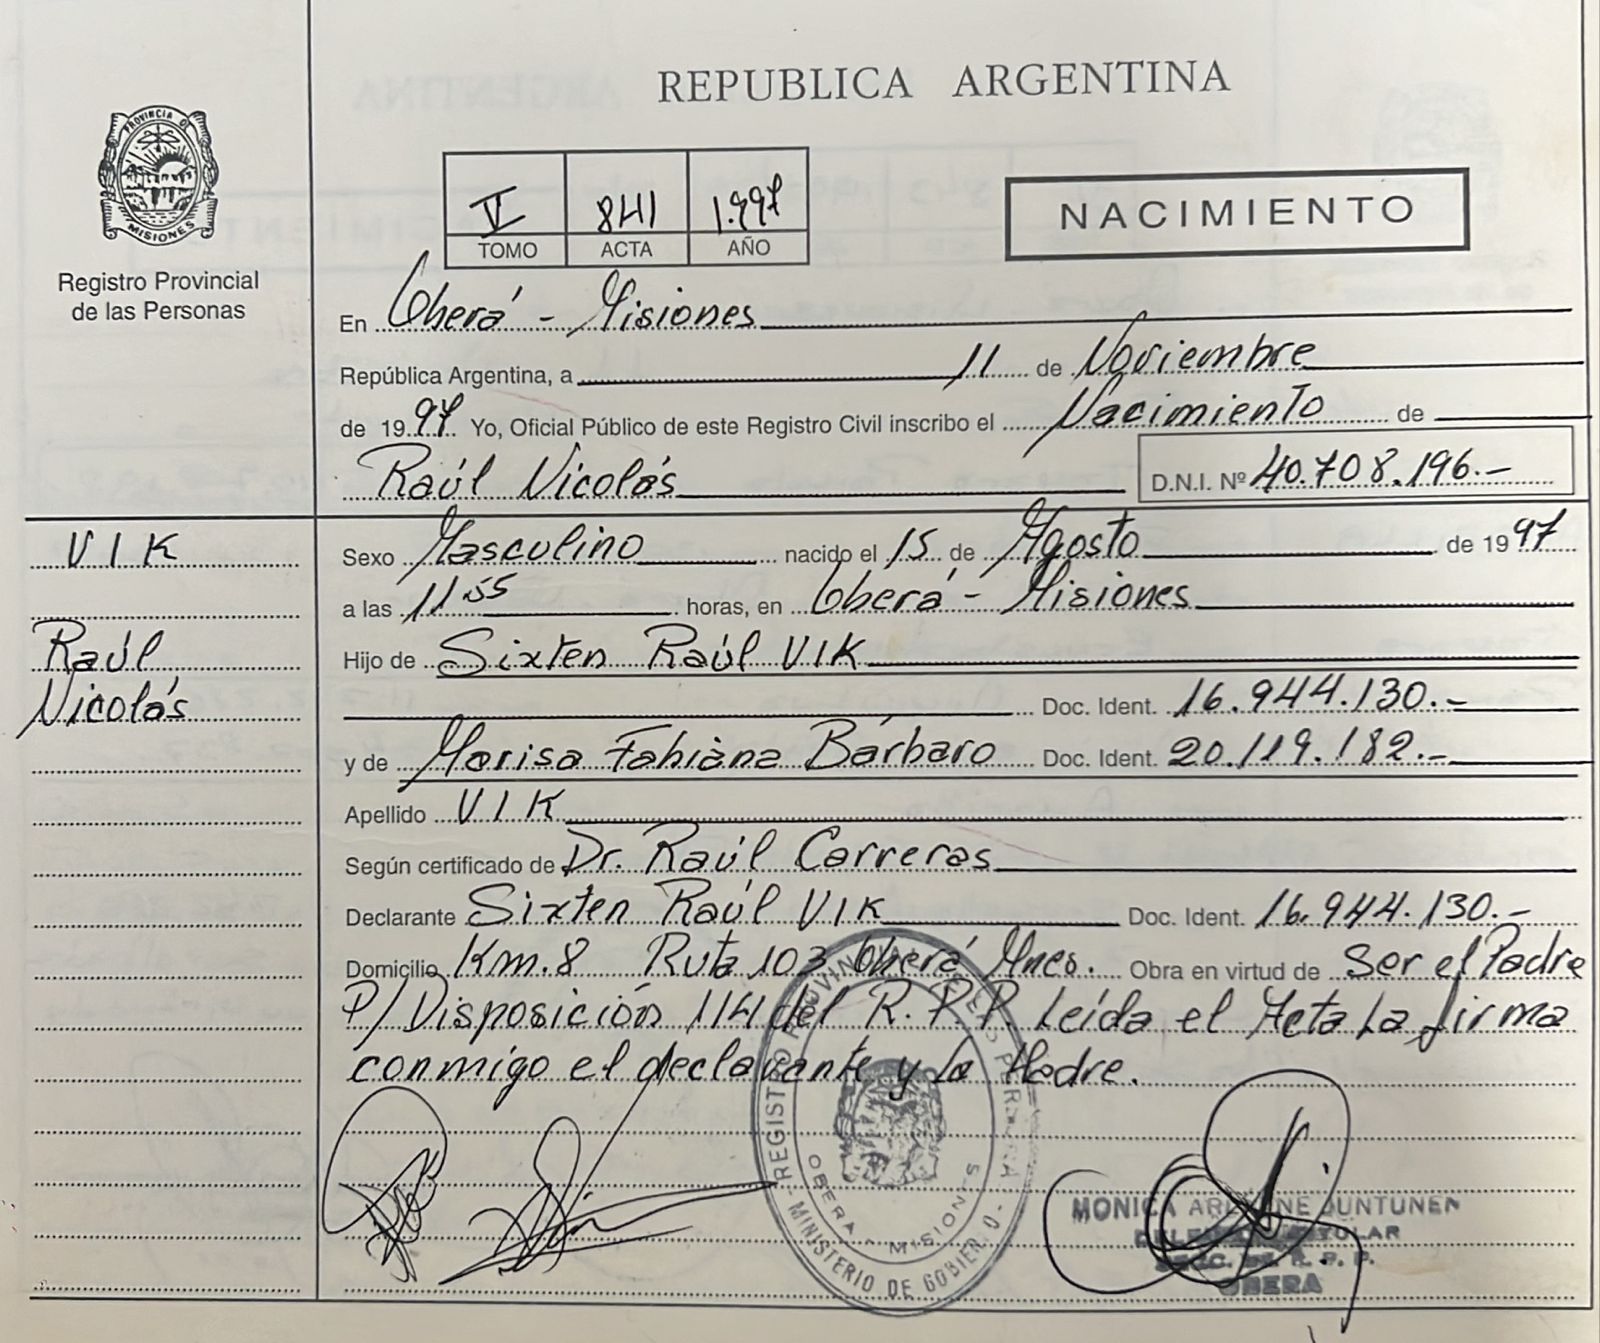 REPUBLICA ARGENTINA
PROVINCIA DE
MISIONES
Registro Provincial
de las Personas
V 841 1.997
TOMO ACTA AÑO
NACIMIENTO
En Oberá - Misiones
República Argentina, a 11 de Noviembre
de 1997 Yo, Oficial Público de este Registro Civil inscribo el Nacimiento de
Raúl Nicolás D.N.I. Nº 40.708.196.-
VIK
Raúl
Nicolás
Sexo Masculino nacido el 15 de Agosto de 1997
a las 11.55 horas, en Oberá - Misiones
Hijo de Sixten Raúl VIK
Doc. Ident. 16.944.130.-
y de Marisa Fabiana Bárbaro Doc. Ident. 20.119.182.-
Apellido VIK
Según certificado de Dr. Raúl Carreras
Declarante Sixten Raúl VIK Doc. Ident. 16.944.130.-
Domicilio Km.8 Ruta 103 Oberá Mnes. Obra en virtud de Ser el Padre
P/Disposición 114 del R.P.P. Leída el Acta La firma
conmigo el declarante y La Madre.
REGISTRO PROVINCIAL DE LAS PERSONAS
OBERA - MISIONES
- MINISTERIO DE GOBIERNO -
MONICA JUNTUNEN
OBERA